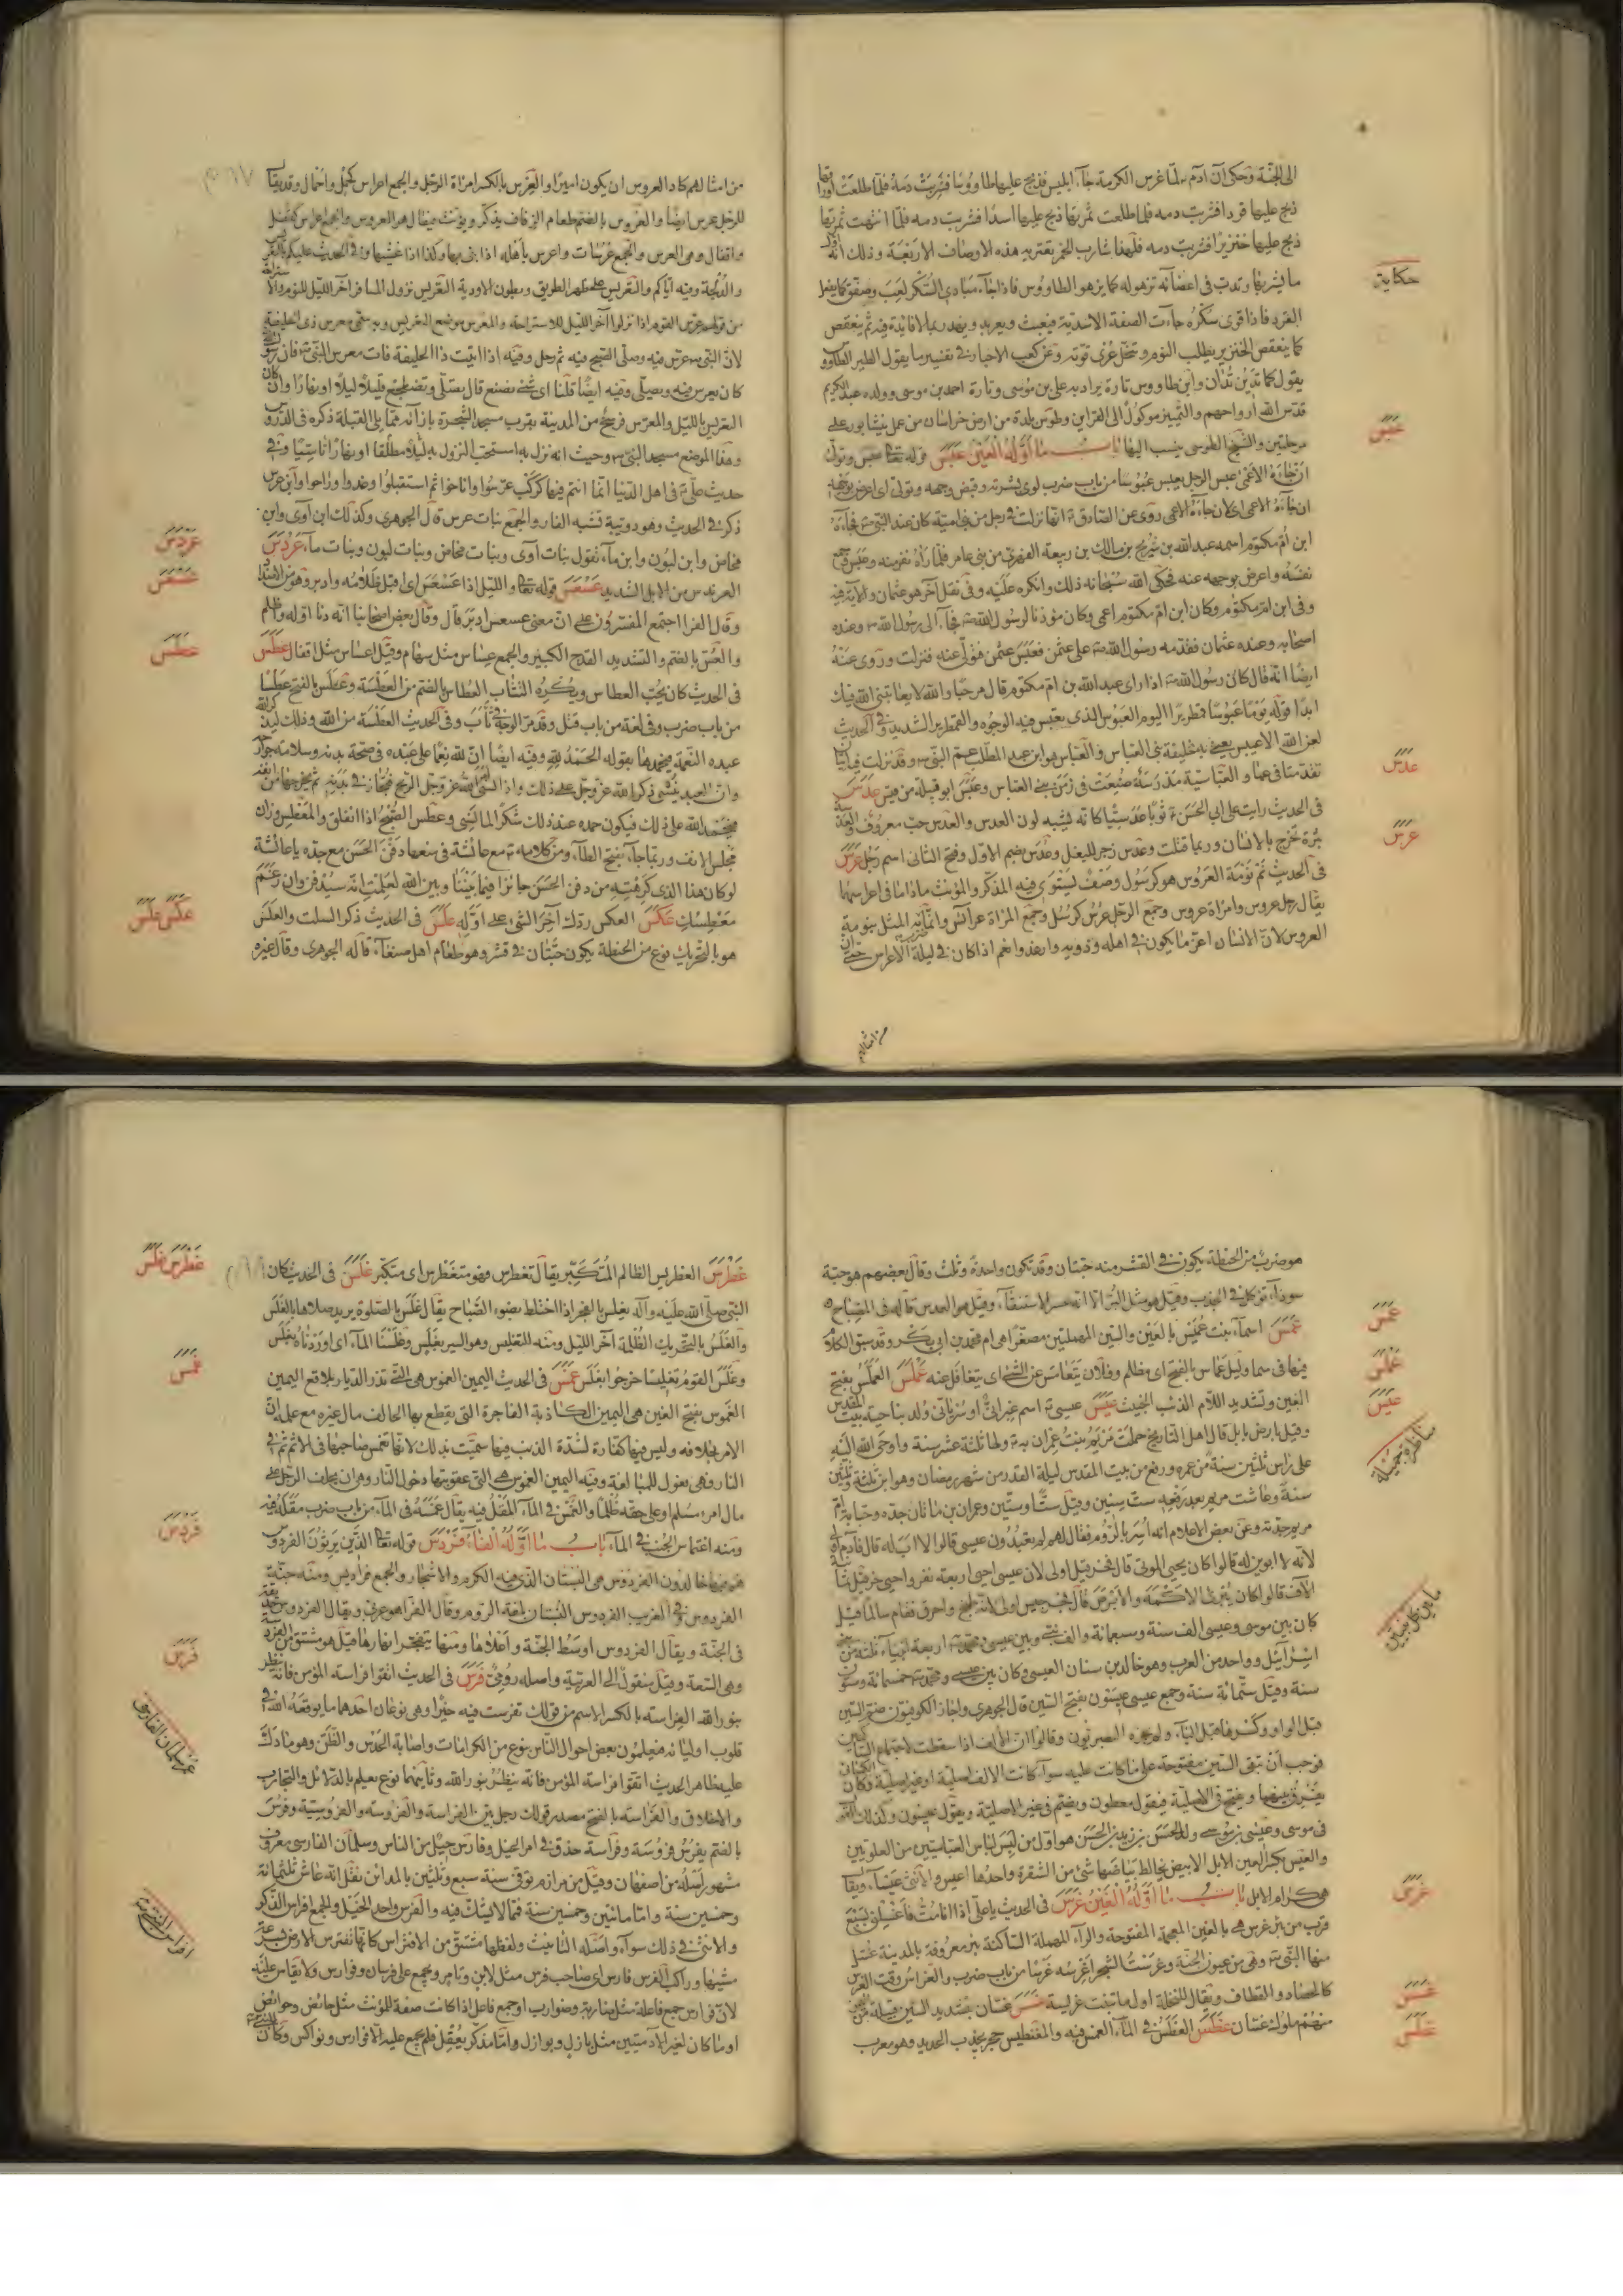 الى الجنة وحكى ان آدم لما غرس الكرمة جآء ابليس فذبح عليها طاووسا فشربت دمه فلما طلعت
ذبح عليها قردا فشربت دمه فلما طلعت ثمرتها ذبح عليها اسدا فشربت دمه فلما انتهت ثمرتها
ذبح عليها خنزيرا فشربت دمه فلهذا شارب الخمر يعتريه هذه الاوصاف الاربعة وذلك انه
ما يشربها وتدب فى اعضائه تزهو له كما يزهو الطاووس فاذا جآء مبادى السكر لعب وصفق كما يفعل
حكاية
القرد فاذا قوى سكره جآءت الصفة الاسدية فيعبث ويعربد ويهدر بما لا فائدة فيه ثم ينعقص
كما ينعقص الخنزير يطلب النوم وتنحل عرى قوته وعن كعب الاحبار فى تفسير ما يقول الطير الطاووس
يقول كما تدين تدان وابن طاووس تارة يراد به على بن موسى وتارة احمد بن موسى وولده عبد الكريم
قدس الله ارواحهم والتمييز موكول الى القراين وطوس بلدة من ارض خراسان من عمل نيشابور على
عبس
مرحلتين والشيخ الطوسى ينسب اليها باب ما اوله العين عبس قوله تعا عبس وتولى
ان جآءه الاعمى عبس الرجل يعبس عبوسا من باب ضرب لوى بشرته وقبض وجهه وتولى اى اعرض بوجهه
ان جآءه الاعمى اى لان جآءه الاعمى روى عن الصادق انها نزلت فى رجل من بنى امية كان عند النبى فجآءه
ابن ام مكتوم اسمه عبد الله بن شريح بن مالك بن ربيعة الفهرى من بنى عامر فلما رآه تقذر منه وعبس وجمع
نفسه واعرض بوجهه عنه فحكى الله سبحانه ذلك وانكره عليه وفى نقل آخر هو عثمان والآية فيه
وفى ابن ام مكتوم وكان ابن ام مكتوم اعمى وكان مؤذنا لرسول الله فجآء الى رسول الله وعنده
اصحابه وعنده عثمان فقدمه رسول الله على عثمن فعبس عثمن وتولى عنه فنزلت وروى عنه
ايضا انه قال كان رسول الله اذا راى عبد الله بن ام مكتوم قال مرحبا والله لا يعاتبنى الله فيك
ابدا قوله يوما عبوسا قمطريرا اليوم العبوس الذى يعبس فيه الوجوه والقمطرير الشديد وفى الحديث
لعن الله الاعيبس يعنى به خليفة بنى العباس والعباس هو ابن عبد المطلب عم النبى وقد نزلت فيه آيتان
عدس
تقدمتا فى عما والعباسية مدرسة صنعت فى زمن بنى العباس وعبس ابو قبيلة من قيس عدس
فى الحديث رايت على ابى الحسن ثوبا عدسيا كانه يشبه لون العدس والعدس حب معروف والعدسة
عرس
بثرة تخرج بالانسان وربما قتلت وعدس زجر للبغل وعدس بضم الاول وفتح الثانى اسم رجل عرس
فى الحديث نم نومة العروس هو كرسول وصف يستوى فيه المذكر والمؤنث ما داما فى اعراسهما
يقال رجل عروس وامراة عروس وجمع الرجل عرس كرسل وجمع المراة عرائس وانما ضرب المثل بنومة
العروس لان الانسان اعز ما يكون فى اهله وذويه وارغد وانعم اذا كان فى ليلة الاعراس حتى ان
من امثالهم
من امثالهم كاد العروس ان يكون اميرا والعرس بالكسر امراة الرجل والجمع اعراس كحمل واحمال وقد يقال
للرجل عرس ايضا والعروس بالضم طعام الزفاف يذكر ويؤنث فيقال هو العروس والجمع اعراس كقفل
واقفال وهى العرس والجمع عرسات واعرس باهله اذا بنى بها وكذا اذا غشيها وفى الحديث عليكم
والدلجة وفيه اياكم والتعريس على ظهر الطريق وبطون الاودية التعريس نزول المسافر آخر الليل للنوم والاستراحة
من قولهم عرس القوم اذا نزلوا آخر الليل للاستراحة والمعرس موضع التعريس وبه سمى معرس ذى الحليفة
لان النبى عرس فيه وصلى الصبح فيه ثم رحل وفيه اذا اتيت ذا الحليفة فات معرس النبى فان رسول
كان يعرس فيه ويصلى وفيه ايضا قلنا اى شئ نصنع قال تصلى وتضطجع قليلا ليلا او نهارا وان كان
التعريس بالليل والمعرس فرسخ من المدينة بقرب مسجد الشجرة بازآئه مما يلى القبلة ذكره فى الدروس
وهذا الموضع مسجد النبى وحيث انه نزل به استحب النزول به ليلا مطلقا او نهارا تاسيا وفى
حديث على فى اهل الدنيا انما انتم فيها كركب عرسوا واناخوا ثم استقبلوا وغدوا وراحوا وابن عرس
ذكر فى الحديث وهو دويبة تشبه الفار والجمع بنات عرس قال الجوهرى وكذلك ابن آوى وابن
عردس
مخاض وابن لبون وابن مآء تقول بنات آوى وبنات مخاض وبنات لبون وبنات مآء عردس
عسعس
العرندس من الابل الشديد عسعس قوله تعا والليل اذا عسعس اى اقبل ظلامه وادبر وهو من الاضداد
وقال الفرا اجتمع المفسرون على ان معنى عسعس ادبر قال وقال بعض اصحابنا انه دنا اوله واظلم
عطس
والعس بالضم والتشديد القدح الكبير والجمع عساس مثل سهام وقيل اعساس مثل اقفال عطس
فى الحديث كان يحب العطاس ويكره التثأب العطاس بالضم من العطسة وعطس بالفتح عطسا
من باب ضرب وفى لغة من باب قتل وقد مر الوجه فى ثأب وفى الحديث العطسة من الله وذلك ليذكر الله
عبده النعمة فيحمدها بقوله الحمد لله وفيه ايضا ان لله نعما على عبده فى صحة بدنه وسلامة جوارحه
وان العبد ينسى ذكر الله عز وجل على ذلك واذا نسى امر الله عز وجل الريح فجازت فى بدنه ثم يخرجها من انفه
فيحمد الله على ذلك فيكون حمده عند ذلك شكرا لما نسى وعطس الصبح اذا انفلق والمعطس وزان
مجلس الانف وربما جآء بفتح الطآء ومن كلامه مع عائشة فى منعها دفن الحسن مع جده يا عائشة
لو كان هذا الذى كرهتيه من دفن الحسن جائزا فيما بيننا وبين الله لعلمت انه سيدفن وان رغم
عكس علس
معطسك عكس العكس ردك آخر الشئ على اوله علس فى الحديث ذكر السلت والعلس
هو بالتحريك نوع من الحنطة يكون حبتان فى قشر وهو طعام اهل صنعآء قاله الجوهرى وقال غيره
هو ضرب من الحنطة يكون فى القشر منه حبتان وقد تكون واحدة وثلث وقال بعضهم هو حبة
سودآء تؤكل فى الجدب وقيل هو مثل البر الا انه عسر الاستنقآء وقيل هو العدس قاله فى المصباح
عمس
عمس اسمآء بنت عميس بالعين والسين المهملتين مصغرا هى ام محمد بن ابى بكر وقد سبق الكلام
عملس
فيها فى سما وليل عماس بالفتح اى مظلم وفلان يتعامس عن الشئ اى يتغافل عنه عملس العملس بفتح
عيس
العين وتشديد اللام الذئب الخبيث عيس عيسى اسم عبرانى او سريانى ولد بناحية بيت المقدس
مناظرة جميلة
وقيل بارض بابل قال اهل التاريخ حملت مريم بنت عمران به ولها ثلثة عشر سنة واوحى الله اليه
على راس ثلثين سنة من عمره ورفع من بيت المقدس ليلة القدر من شهر رمضان وهو ابن ثلثة وثلثين
سنة وعاشت مريم بعد رفعه ست سنين وقيل ستا وستين وعمران بن ماثان جده وحنا بنة ام
مريم جدته وعن بعض الاعلام انه اسر بالروم فقال لهم لم تعبدون عيسى قالوا لانه لا اب له قال فآدم اولى
لانه لا ابوين له قالوا كان يحيى الموتى قال فحزقيل اولى لان عيسى احيى اربعة نفر واحيى حزقيل ثمانية
الآف قالوا كان يبرئ الاكمه والابرص قال فجرجيس اولى لانه طبخ واحرق فقام سالما قيل
ما بين كل نبيين
كان بين موسى وعيسى الف سنة وسبعمائة والف نبى وبين عيسى ومحمد اربعة انبيآء ثلثة من بنى
اسرآئيل وواحد من العرب وهو خالد بن سنان العبسى وكان بين عيسى ومحمد خمسمائة وستون
سنة وقيل ستمائة سنة وجمع عيسى عيسون بفتح السين قال الجوهرى واجاز الكوفيون ضم السين
قبل الواو وكسرها قبل اليآء ولم يجزه البصريون وقالوا ان الالف اذا سقطت لاجتماع الساكنين
فوجب ان تبقى السين مفتوحة على ما كانت عليه سوآء كانت الالف اصلية او غير اصلية وكان الكسائى
يفرق بينهما ويفتح فى الاصلية فيقول معطون ويضم فى غير الاصلية ويقول عيسون وكذلك القول
فى موسى وعيسى بن موسى ولد الحسن بن زيد بن الحسن هو اول من لبس لباس العباسيين من العلويين
والعيس بكسر العين الابل الابيض يخالط بياضها شئ من الشقرة واحدها اعيس والانثى عيسآء ويقال
غرس
هى كرام الابل باب ما اوله الغين غرس فى الحديث يا على اذا انا مت فاغسلنى بسبع
قرب من بئر غرس هى بالغين المعجمة المفتوحة والرآء المهملة الساكنة بئر معروفة بالمدينة غسل
منها النبى وهى من عيون الجنة وغرست الشجر اغرسه غرسا من باب ضرب والغراس وقت الغرس
غسس
كالحصاد والقطاف ويقال للنخلة اول ما تنبت غريسة غسس غسان بتشديد السين قبيلة من اليمن
غطس
منهم ملوك غسان غطس الغطس فى المآء الغمس فيه والمغنطيس حجر يجذب الحديد وهو معرب
غطرس غلس
غطرس الغطريس الظالم المتكبر يقال تغطرس فهو متغطرس اى متكبر غلس فى الحديث كان
النبى صلى الله عليه وآله يغلس بالفجر اذا اختلط بضوء الصباح يقال غلس بالصلوة يريد صلاها بالغلس
والغلس بالتحريك الظلمة آخر الليل ومنه التغليس وهو السير بغلس وغلسنا المآء اى اوردناه بغلس
غمس
وغلس القوم تغليسا خرجوا بغلس غمس فى الحديث اليمين الغموس هى التى تذر الديار بلاقع اليمين
الغموس بفتح الغين هى اليمين الكاذبة الفاجرة التى يقطع بها الحالف مال غيره مع علمه ان
الامر بخلافه وليس فيها كفارة لشدة الذنب فيها سميت بذلك لانها تغمس صاحبها فى الاثم ثم فى
النار وهى فعول للمبالغة وفيه اليمين الغموس هى التى عقوبتها دخول النار وهو ان يحلف الرجل على
مال امرء مسلم او على حقه ظلما والغمس فى المآء المقل فيه يقال غمسه فى المآء من باب ضرب مقله فيه
فردس
ومنه اغتماس الجنب فى المآء باب ما اوله الفآء فردس قوله تعا الذين يرثون الفردوس
هم فيها خالدون الفردوس هى البستان الذى فيه الكرم والاشجار والجمع فراديس ومنه جنة
الفردوس وفى الغريب الفردوس البستان بلغة الروم وقال الفرا هو عربى ويقال الفردوس
فى الجنة ويقال الفردوس اوسط الجنة واعلاها ومنها يتفجر انهارها قيل هو مشتق من الفردسة
فرس
وهى السعة وقيل منقول الى العربية واصله رومى فرس فى الحديث اتقوا فراسة المؤمن فانه ينظر
بنور الله الفراسة بالكسر الاسم من قولك تفرست فيه خيرا وهى نوعان احدهما ما يوقعه الله فى
عمر سلمان الفارسى
قلوب اوليائه فيعلمون بعض احوال الناس بنوع من الكرامات واصابة الحدس والظن وهو ما دل
عليه ظاهر الحديث اتقوا فراسة المؤمن فانه ينظر بنور الله وثانيهما نوع يعلم بالدلائل والتجارب
والاخلاق والفراسة بالفتح مصدر قولك رجل بين الفراسة والفروسة والفروسية وفرس
بالضم يفرس فروسة وفراسة حذق فى امر الخيل وفارس جيل من الناس وسلمان الفارسى معروف
مشهور اصله من اصفهان وقيل من رامهرمز توفى سنة سبع وثلثين بالمدائن نقل انه عاش ثلثمائة
وخمسين سنة واما مائتين وخمسين سنة فمما لا يشك فيه والفرس واحد الخيل والجمع افراس الذكر
والانثى فى ذلك سوآء واصله التانيث ولفظها مشتق من الافتراس كانها تفترس الارض بسرعة
افراس النبى
مشيها وراكب الفرس فارس اى صاحب فرس مثل لابن وتامر ويجمع على فرسان وفوارس ولا يقاس عليه
لان فواعل جمع فاعلة مثل ضاربة وضوارب او جمع فاعل اذا كانت صفة للمؤنث مثل حائض وحوائض
او ما كان لغير الآدميين مثل بازل وبوازل واما مذكر يعقل فلم يجمع عليه الا فوارس ونواكس وكان